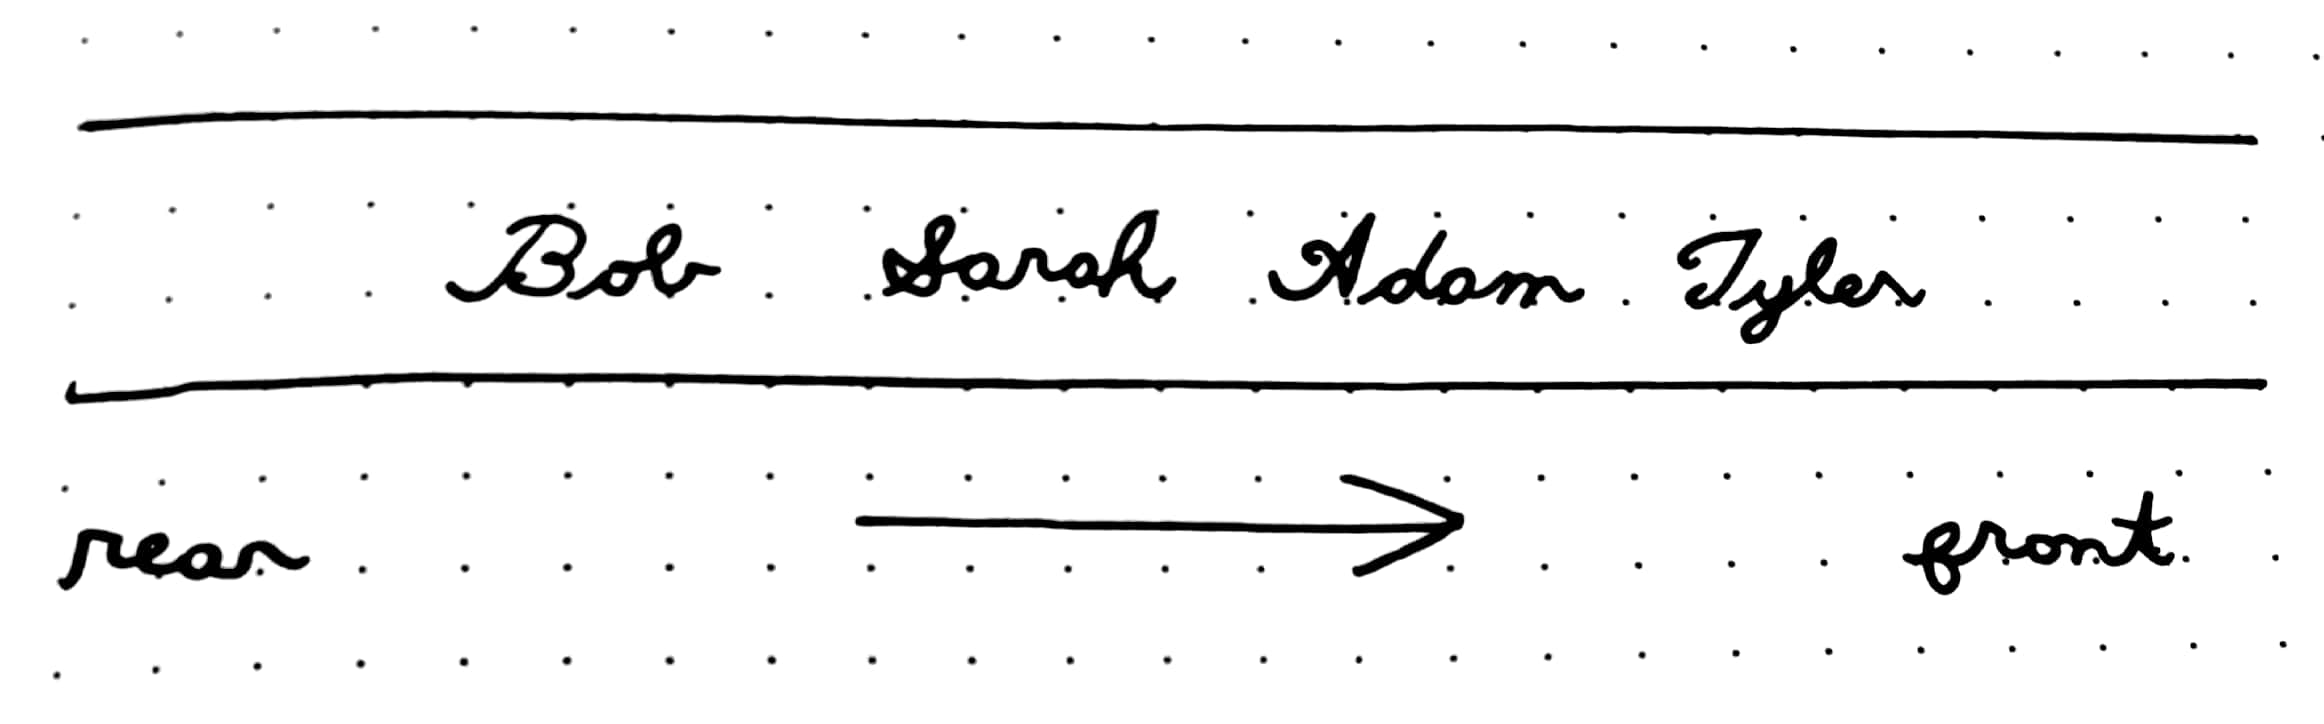 Bob Sarah Adam Tyler
rear front